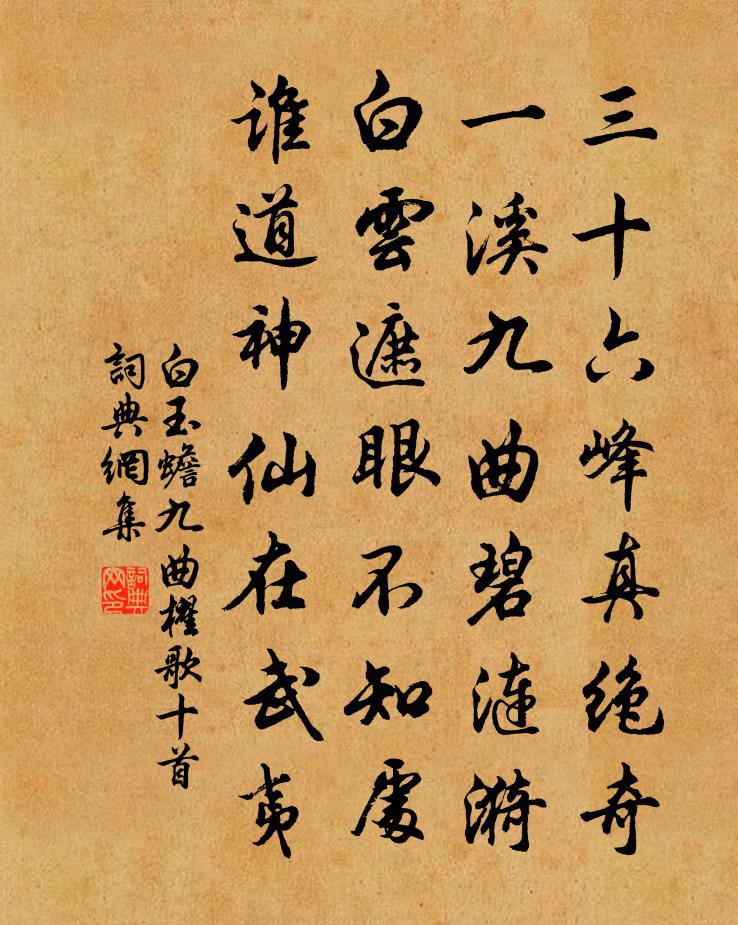 三十六峰真绝奇
一溪九曲碧漣漪
白雲遮眼不知處
誰道神仙在武夷
白玉蟾九曲櫂歌十首
詞典網集
詞典網印